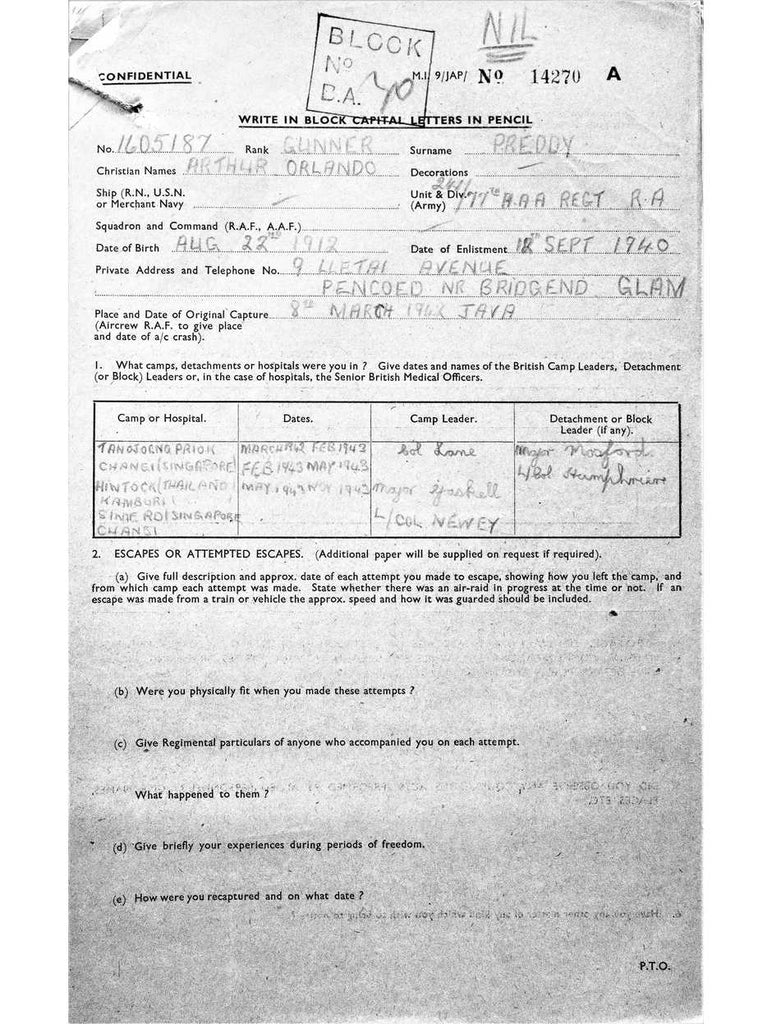 NIL
BLOCK
No
D.A. 40
CONFIDENTIAL
M.I. 9/JAP/ No 14270 A
WRITE IN BLOCK CAPITAL LETTERS IN PENCIL
No. 1605187 Rank GUNNER Surname PREDDY
Christian Names ARTHUR ORLANDO Decorations
Ship (R.N., U.S.N. or Merchant Navy
Unit & Div. (Army) 241/77TH H.A.A REGT R.A
Squadron and Command (R.A.F., A.A.F.)
Date of Birth AUG 22ND 1912 Date of Enlistment 12 SEPT 1940
Private Address and Telephone No. 9 LLETAI AVENUE
PENCOED NR BRIDGEND GLAM
Place and Date of Original Capture 8TH MARCH 1942 JAVA
(Aircrew R.A.F. to give place
and date of a/c crash).
1. What camps, detachments or hospitals were you in ? Give dates and names of the British Camp Leaders, Detachment
(or Block) Leaders or, in the case of hospitals, the Senior British Medical Officers.
Camp or Hospital. Dates. Camp Leader. Detachment or Block
Leader (if any).
TANOJOENG PRIOK MARCH 1942 FEB 1943 Col Lane Major Mosford
CHANGI (SINGAPORE) FEB 1943 MAY 1943 L/Col Humphries
HINTOCK (THAILAND) MAY 1943 NOV 1943 Major Gaskell
KAMBURI
SIME RD SINGAPORE L/COL NEWEY
CHANGI
2. ESCAPES OR ATTEMPTED ESCAPES. (Additional paper will be supplied on request if required).
(a) Give full description and approx. date of each attempt you made to escape, showing how you left the camp, and
from which camp each attempt was made. State whether there was an air-raid in progress at the time or not. If an
escape was made from a train or vehicle the approx. speed and how it was guarded should be included.
(b) Were you physically fit when you made these attempts ?
(c) Give Regimental particulars of anyone who accompanied you on each attempt.
What happened to them ?
(d) Give briefly your experiences during periods of freedom.
(e) How were you recaptured and on what date ?
P.T.O.